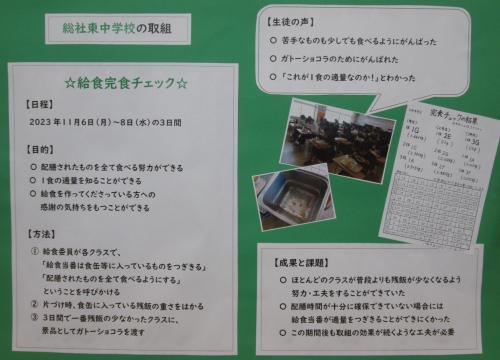 総社東中学校の取組
☆給食完食チェック☆
【日程】
2023年11月6日(月)～8日(水)の3日間
【目的】
○ 配膳されたものを全て食べる努力ができる
○ 1食の適量を知ることができる
○ 給食を作ってくださっている方への
感謝の気持ちをもつことができる
【方法】
① 給食委員が各クラスで、
「給食当番は食缶等に入っているものをつぎきる」
「配膳されたものを全て食べるようにする」
ということを呼びかける
② 片づけ時、食缶に入っている残飯の重さをはかる
③ 3日間で一番残飯の少なかったクラスに、
景品としてガトーショコラを渡す
【生徒の声】
○ 苦手なものも少しでも食べるようにがんばった
○ ガトーショコラのためにがんばれた
○ 「これが1食の適量なのか！」とわかった
完食チェックの結果
1G 2E 3G
【成果と課題】
○ ほとんどのクラスが普段よりも残飯が少なくなるよう
努力・工夫をすることができていた
○ 配膳時間が十分に確保できていない場合には
給食当番が適量をつぎきることができにくかった
○ この期間後も取組の効果が続くような工夫が必要